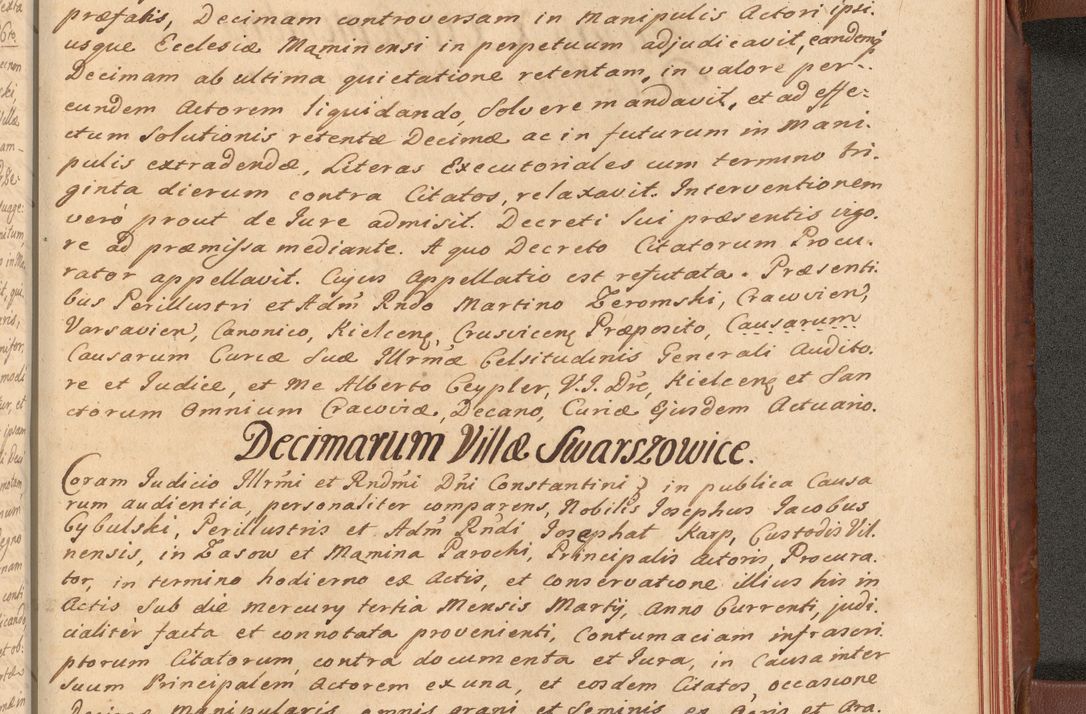 præfatis, Decimam controversam in Manipulis Actori ipsi.
usque Ecclesiæ Mąminensi in perpetuum adjudicavit, eandemq́
Decimam ab ultima quietatione retentam, in valore per-
eundem Actorem liquidando, solvere mandavit, et ad effe-
ctum solutionis retentæ Decimæ ac in futurum in Mani.
pulis extradendæ, Literas Executoriales cum termino tri.
ginta dierum contra Citatos, relaxavit. Interventionem
verò prout de Jure admisit. Decreti sui præsentis vigo.
re ad præmissa mediante. A quo Decreto Citatorum Procu.
rator appellavit. Cujus Appellatio est refutata. Præsenti.
bus Perillustri et Adm̃ Rñdo Martino Zeromski, Cracovien,
Varsavien, Canonico, Kielceną, Crusviceną Præposito, Causarum
Causarum Curiæ suæ Illrm̃æ Celsitudinis Generali Audito.
re et Judice, et me Alberto Ceypler, V. J. Dre, Kielceną et San
ctorum Omnium Cracoviæ, Decano, Curiæ Ejusdem Actuario.
Decimarum Villæ Swarszowice.
Coram Judicio Illrm̃i et Rndm̃i Dñi Constantini in publica Causa
rum audientia, personaliter comparens, Nobilis Josephus Jacobus
Cybulski, Perillustris et Adm̃ Rñdi Josephat Karp, Custodis Vil.
nensis, in Zasow et Mąmina Parochi, Principalis Actoris, Procura.
tor, in termino hodierno ex Actis, et conservatione illius his in
Actis sub die Mercurij tertia Mensis Martij, Anno Currenti, judi.
cialitèr facta et connotata provenienti, Contumaciam infrascri
ptorum Citatorum, contra documenta et Jura, in Causa inter
suum Principalem Actorem ex una, et eosdem Citatos, occasione
Decimæ Manipularis omnis grani et Seminis ex Agris et Ara.